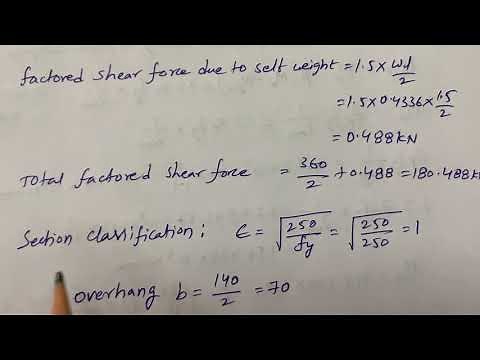 factored shear force due to self weight = 1.5 x wd/2
= 1.5 x 0.4336 x 1.5/2
= 0.488 KN
Total factored shear force = 360/2 + 0.488 = 180.488 KN
Section classification: ϵ = √250/fy = √250/250 = 1
overhang b = 140/2 = 70